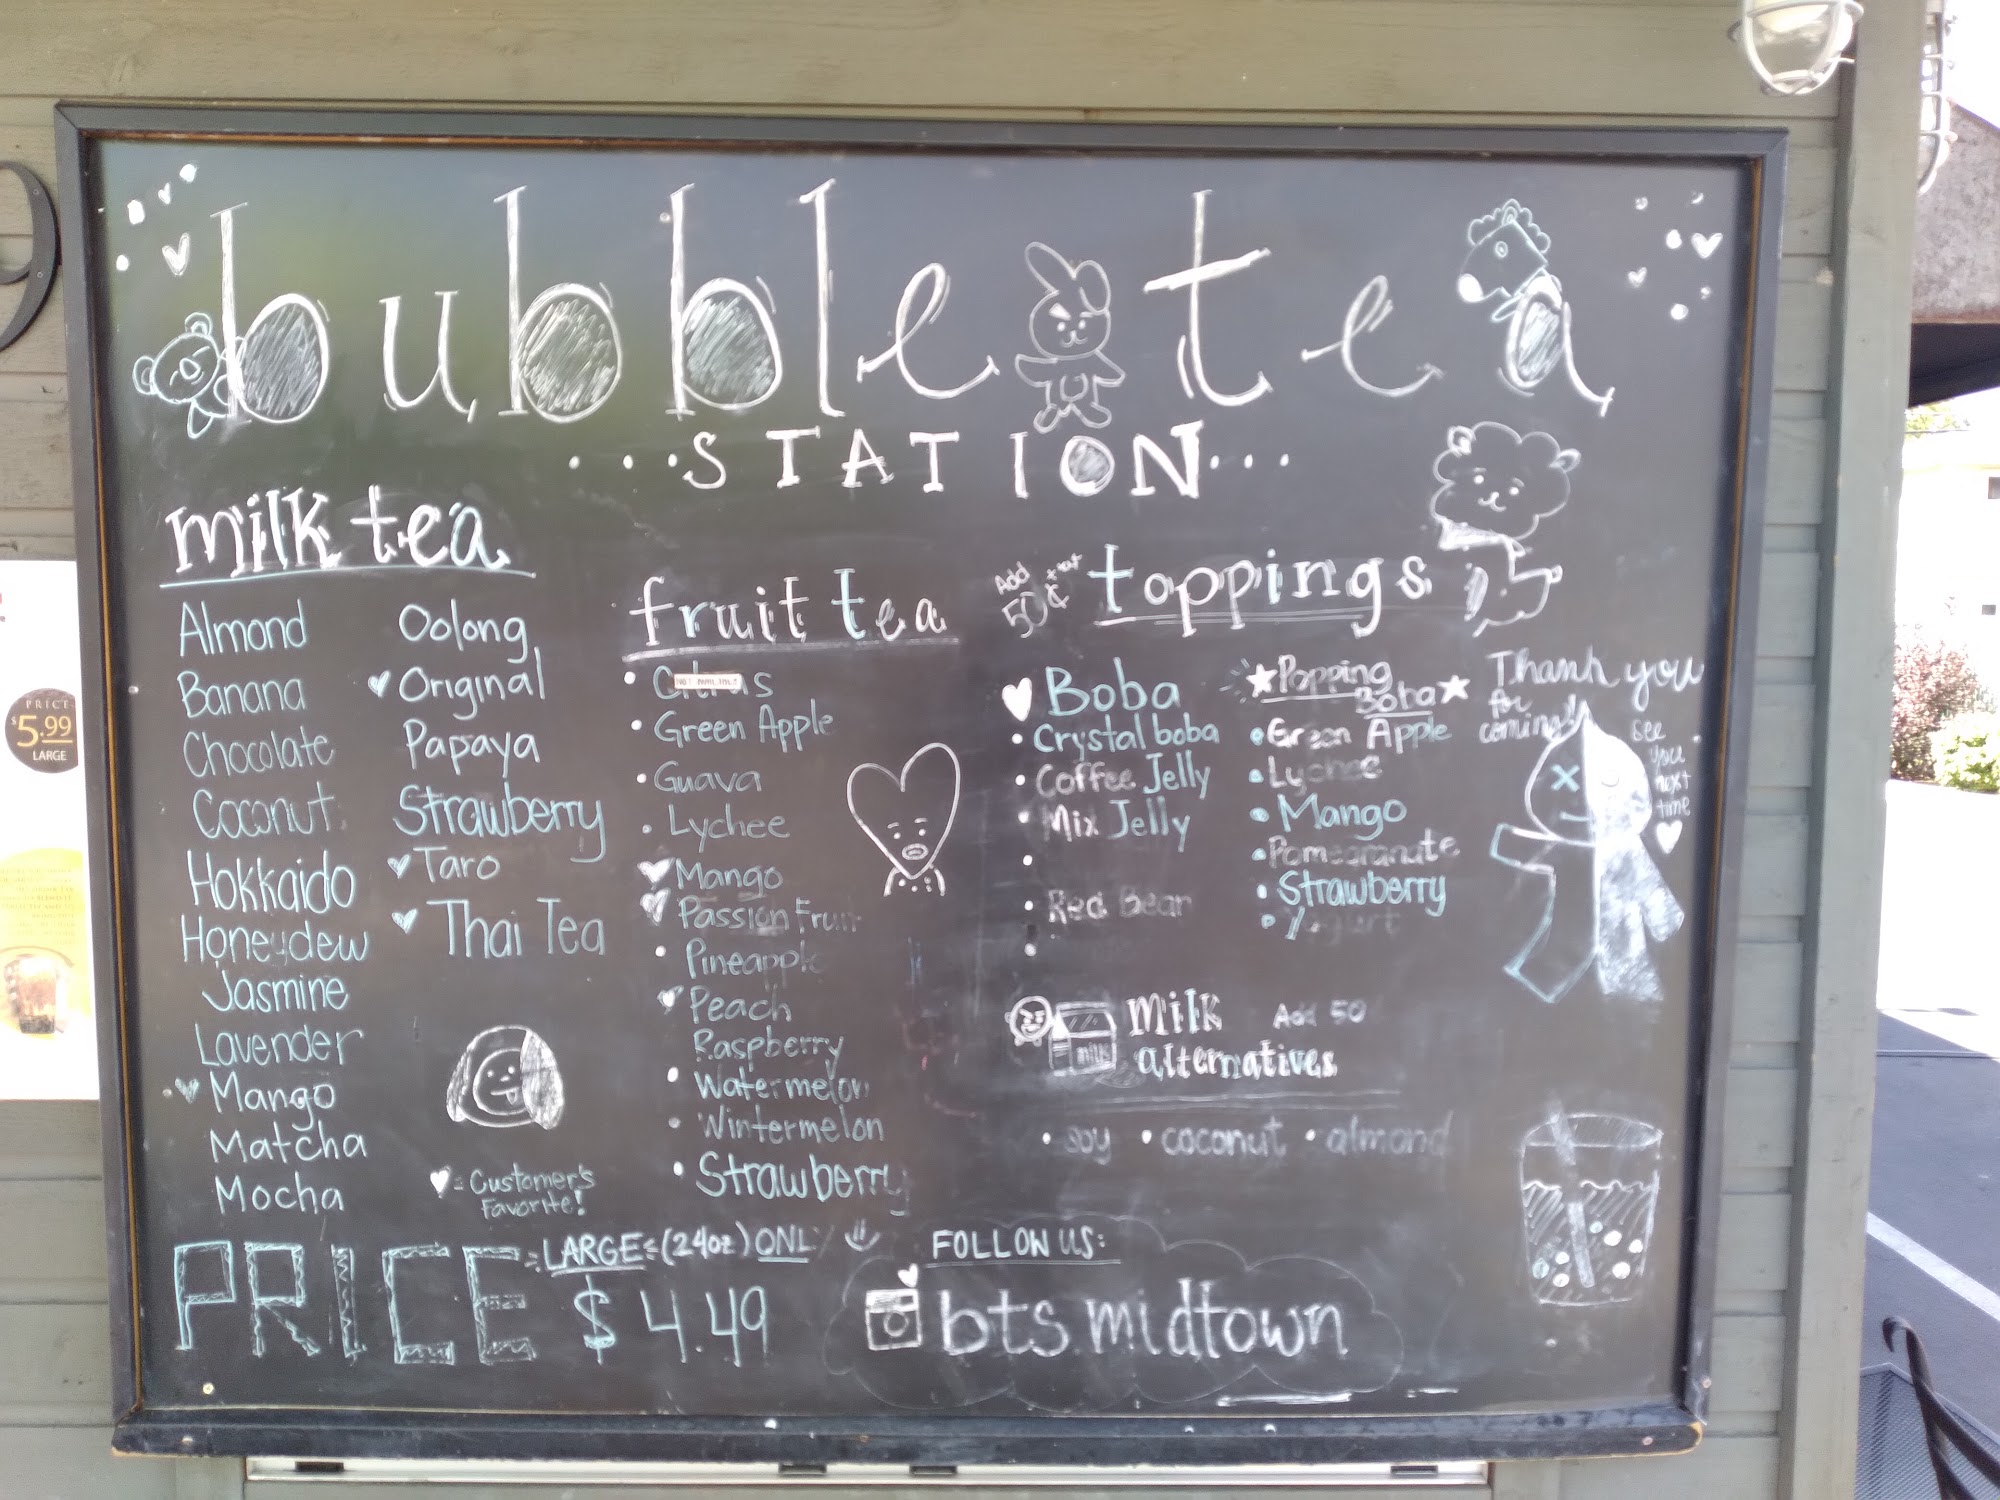 bubble tea
...STATION...
milk tea
Almond
Banana
Chocolate
Coconut
Hokkaido
Honeydew
Jasmine
Lavender
Mango
Matcha
Mocha
Oolong
Original
Papaya
Strawberry
Taro
Thai Tea
= Customer's
Favorite!
fruit tea
Citrus
NOT AVAILABLE
Green Apple
Guava
Lychee
Mango
Passion Fruit
Pineapple
Peach
Raspberry
Watermelon
Wintermelon
Strawberry
Add
50¢
toppings
Boba
Crystal boba
Coffee Jelly
Mix Jelly
Red Bean
Popping
Boba
Green Apple
Lychee
Mango
Pomegranate
Strawberry
Yogurt
Thank you
for
coming!
see
you
next
time
milk Add 50
alternatives
milk
• soy • coconut • almond
PRICE
LARGE (24oz) ONLY
$4.49
FOLLOW US:
bts.midtown
PRICE
$5.99
LARGE
9